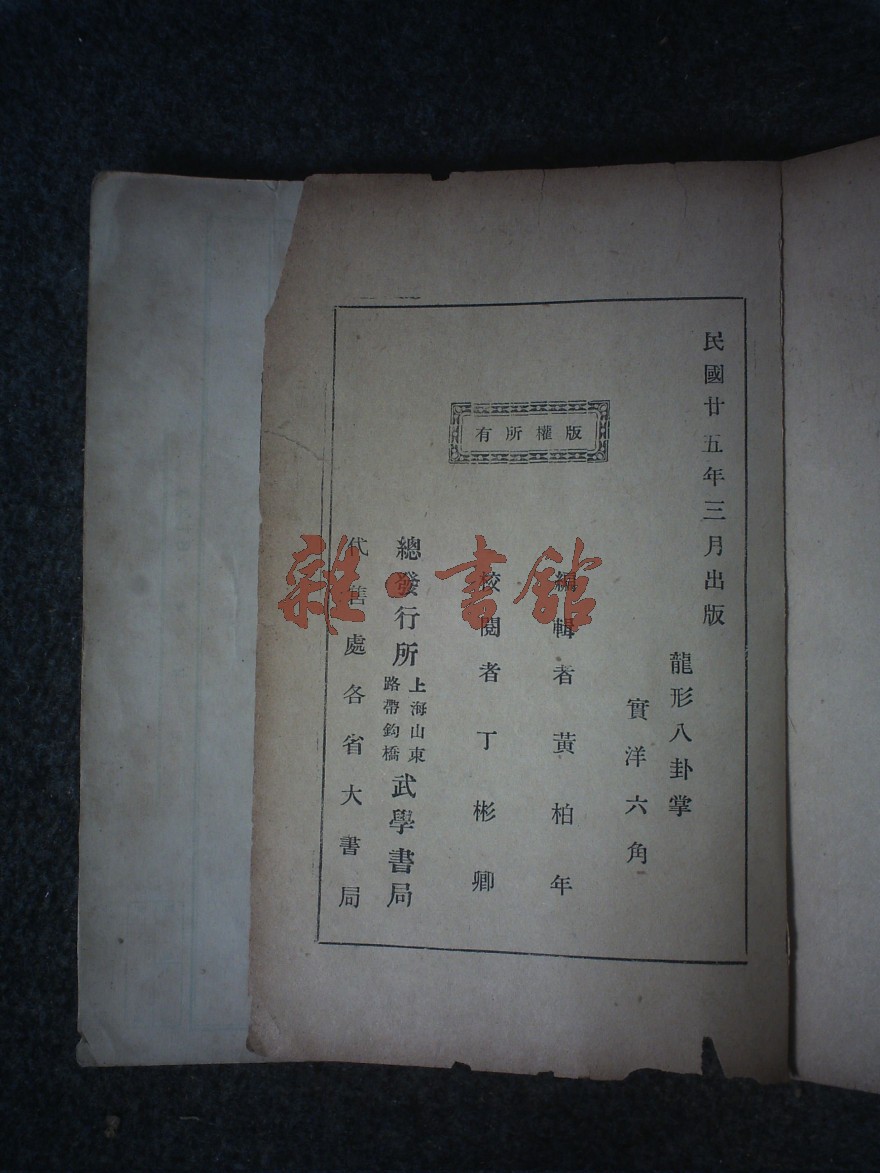 民國廿五年三月出版
龍形八卦掌
實洋六角
版權所有
編輯者 黃柏年
校閱者 丁彬卿
總發行所 上海山東路帶鈎橋 武學書局
代售處各省大書局
雜·書館